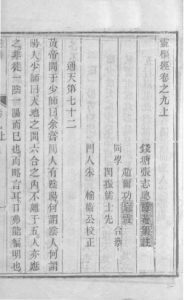 靈樞經卷之九上
錢塘張志聰隱菴集註
同學
閔振儒士先
合參
門人朱 輪衞公校正
通天第七十二
黃帝問于少師曰余嘗聞人有陰陽何謂陰人何謂
陽人少師曰天地之間六合之內不離于五人亦應
之非徒一陰一陽而已也而略言耳口弗能徧明也